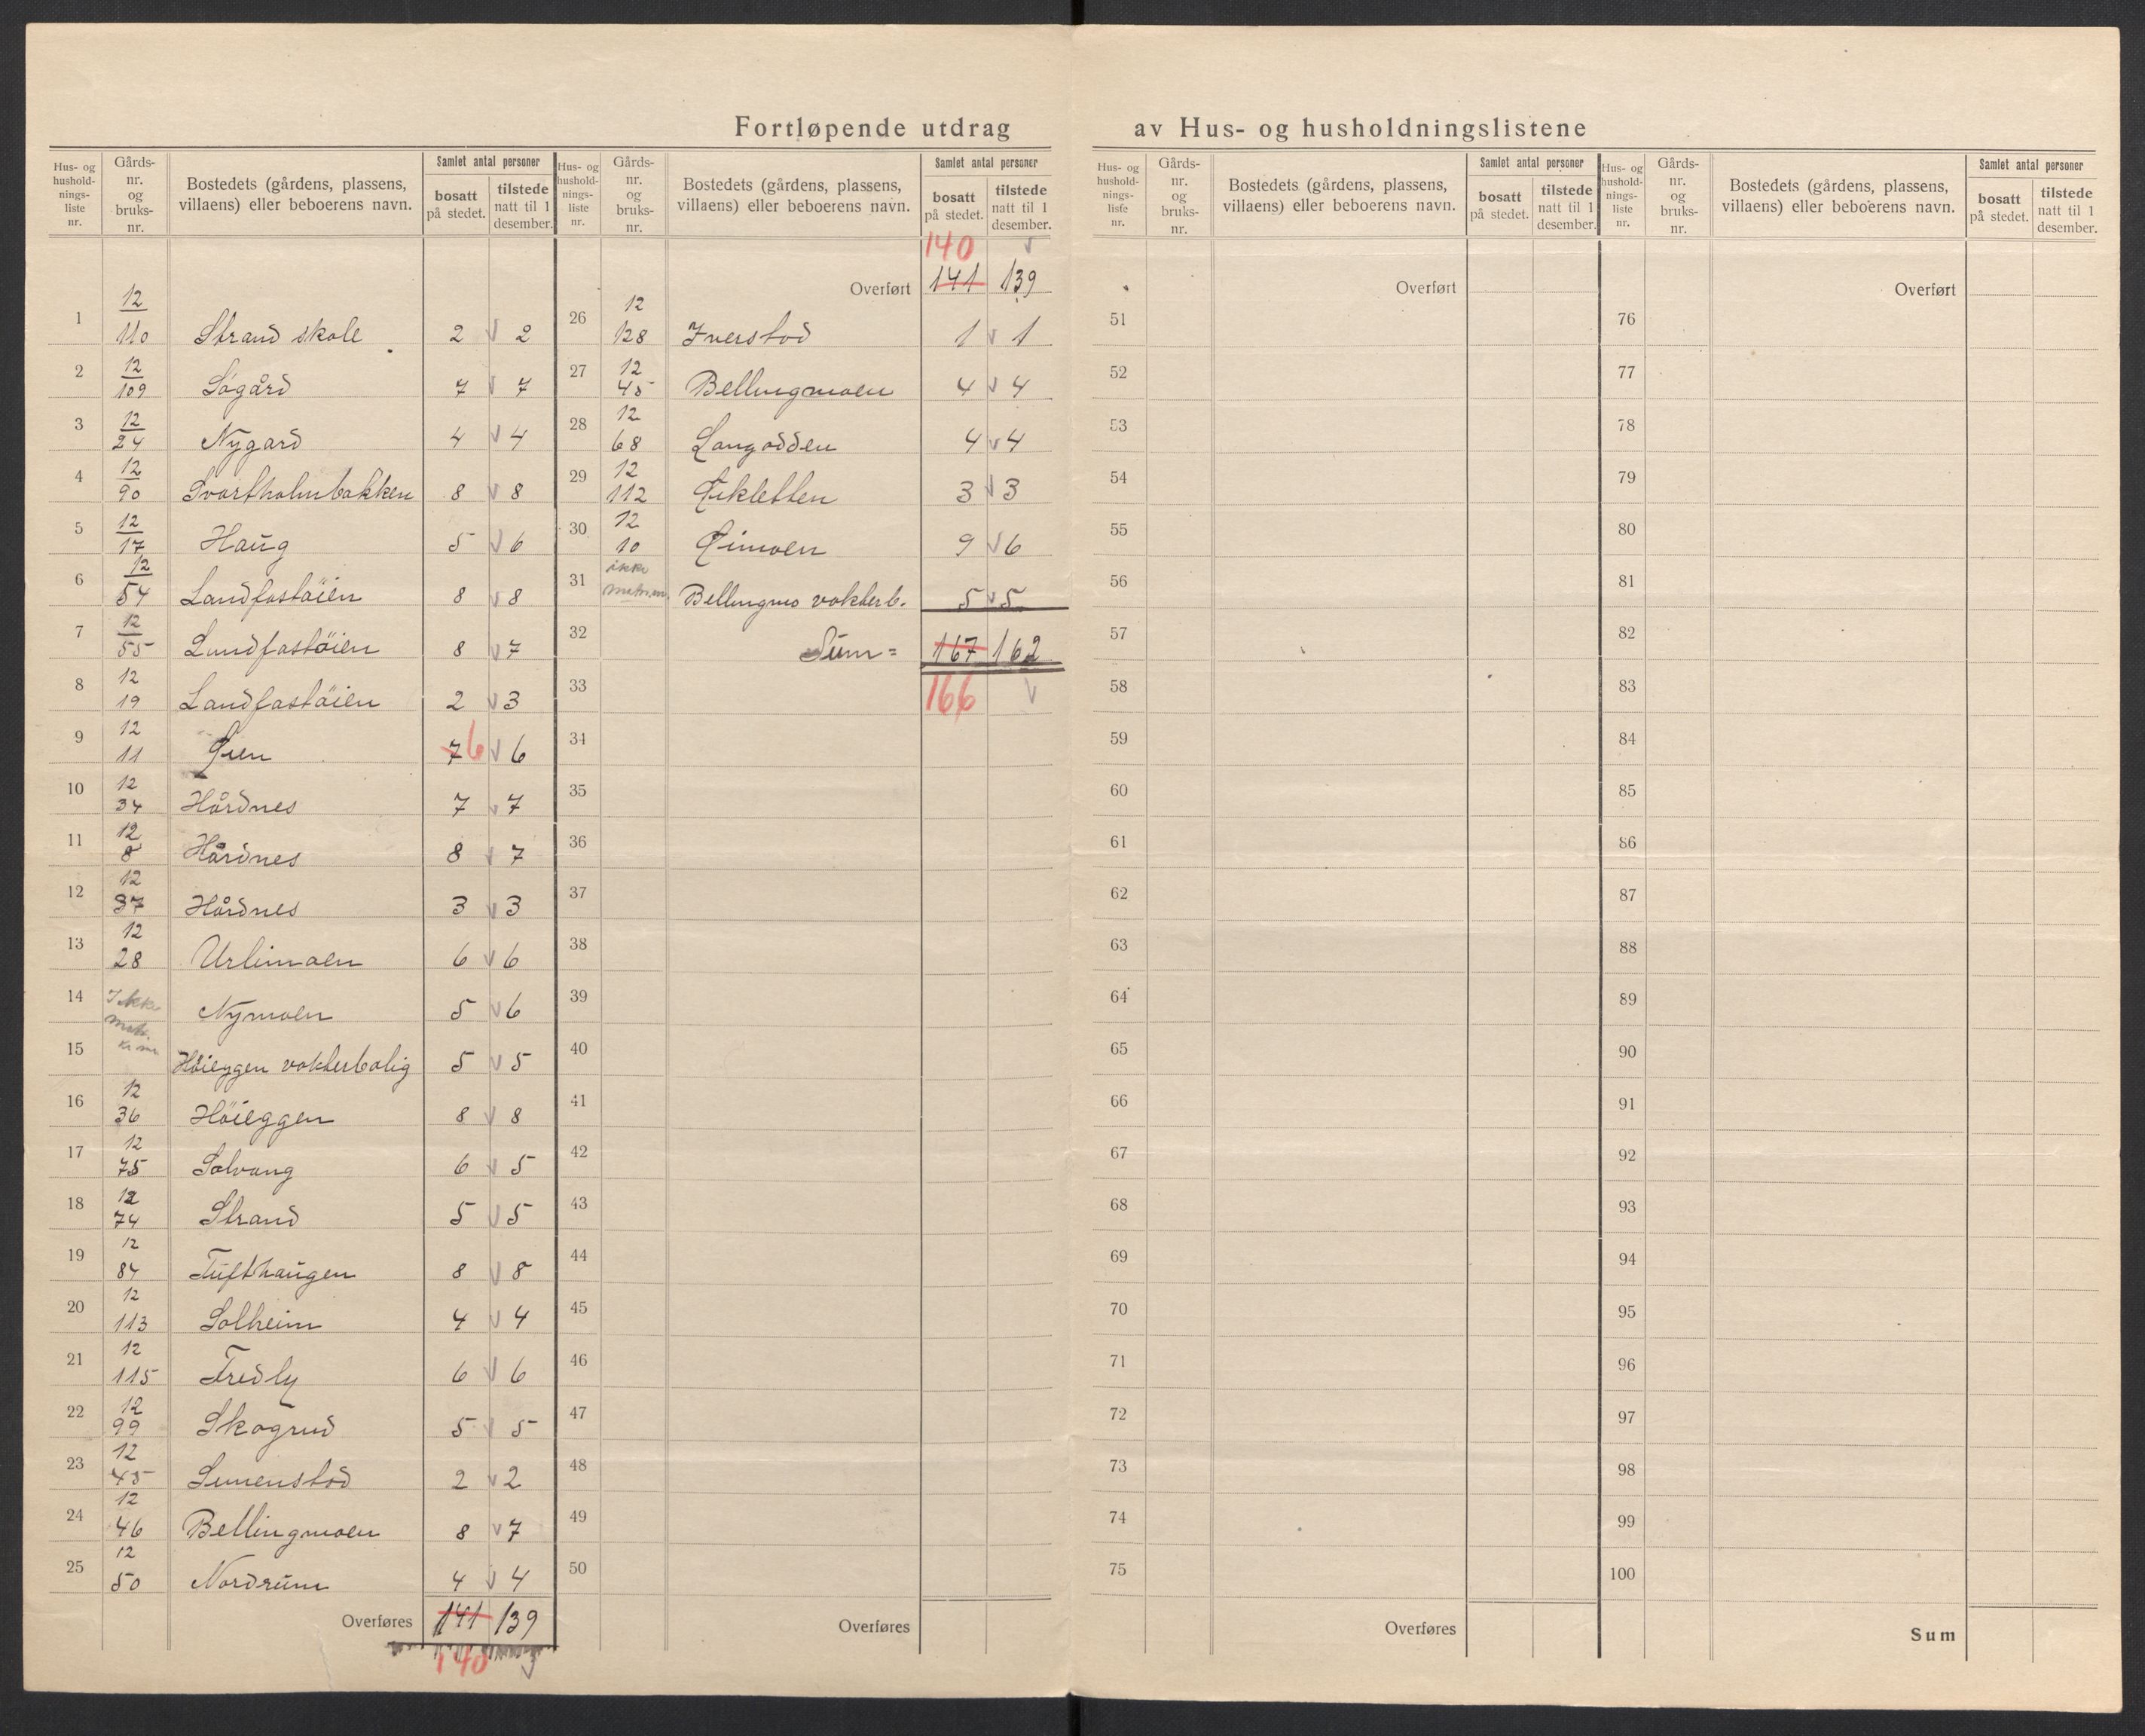 Fortløpende utdrag av Hus- og husholdningslistene
Hus- og hushold-nings-liste nr. Gårds-nr. og bruks-nr. Bostedets (gårdens, plassens, villaens) eller beboerens navn. Samlet antal personer bosatt på stedet. tilstede natt til 1 desember.
1 12/110 Strand skole 2 v 2
2 12/109 Søgård 7 v 7
3 12/24 Nygard 4 v 4
4 12/90 Svartholmbakken 8 v 8
5 12/17 Haug 5 v 6
6 12/54 Landfastøien 8 v 8
7 12/55 Landfastöien 8 v 7
8 12 19 Landfastöien 2 v 3
9 12 11 Øien 7 6 v 6
10 12 34 Hårdnes 7 v 7
11 12 8 Hårdnes 8 v 7
12 12 37 Hårdnes 3 v 3
13 12 28 Urlimoen 6 v 6
14 Ikke Nymoen 5 v 6
15 Höieggen vokterbolig 5 v 5
16 12 36 Höieggen 8 v 8
17 12 75 Solvang 6 v 5
18 12 74 Strand 5 v 5
19 12 84 Tufthaugen 8 v 8
20 12 113 Solheim 4 v 4
21 12 115 Fredly 6 v 6
22 12 99 Skogrud 5 v 5
23 12 45 2 v 2
24 12 46 Bellingmoen 8 v 7
25 12 50 Nordrum 4 v 4
Overføres 141 139
140 v
Hus- og hushold-nings-liste nr. Gårds-nr. og bruks-nr. Bostedets (gårdens, plassens, villaens) eller beboerens navn. Samlet antal personer bosatt på stedet. tilstede natt til 1 desember.
140 v
Overført 141 139
26 12 128 Iverstad 1 v 1
27 12 45 Bellingmoen 4 v 4
28 12 68 Langodden 4 v 4
29 12 112 Øikletten 3 v 3
30 12 10 Øimoen 9 v 6
31 ikke Bellingmo vokterb. 5 v 5
32 Sum = 167 162
33 166 v
34
35
36
37
38
39
40
41
42
43
44
45
46
47
48
49
50
Overføres
Hus- og hushold-nings-liste nr. Gårds-nr. og bruks-nr. Bostedets (gårdens, plassens, villaens) eller beboerens navn. Samlet antal personer bosatt på stedet. tilstede natt til 1 desember.
Overført
51
52
53
54
55
56
57
58
59
60
61
62
63
64
65
66
67
68
69
70
71
72
73
74
75
Overføres
Hus- og hushold-nings-liste nr. Gårds-nr. og bruks-nr. Bostedets (gårdens, plassens, villaens) eller beboerens navn. Samlet antal personer bosatt på stedet. tilstede natt til 1 desember.
Overført
76
77
78
79
80
81
82
83
84
85
86
87
88
89
90
91
92
93
94
95
96
97
98
99
100
Sum